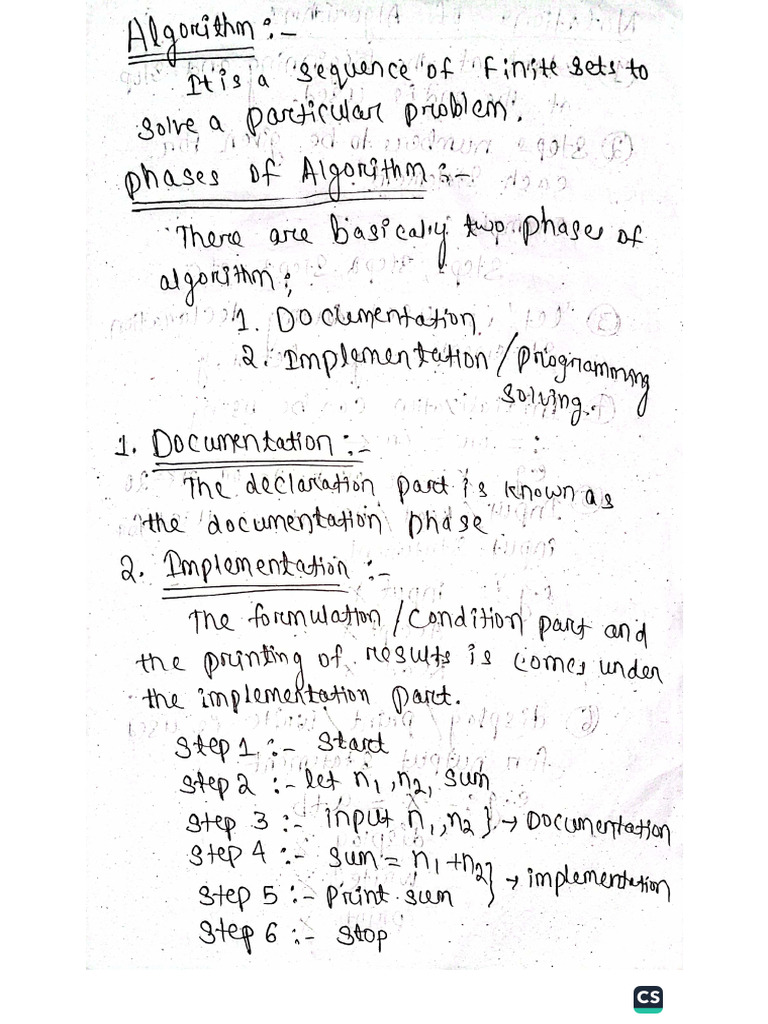 Algorithm :-
It is a sequence of finite sets to
solve a particular problem.
Phases of Algorithm :-
There are basically two phases of
algorithm:
1. Documentation
2. Implementation / programming
solving.
1. Documentation :-
The declaration part is known as
the documentation phase
2. Implementation :-
The formulation / condition part and
the printing of results is comes under
the implementation part.
Step 1 :- Start
Step 2 :- let n1, n2, sum
Step 3 :- input n1, n2 } → Documentation
Step 4 :- sum = n1 + n2
Step 5 :- print sum } → implementation
Step 6 :- Stop
CS